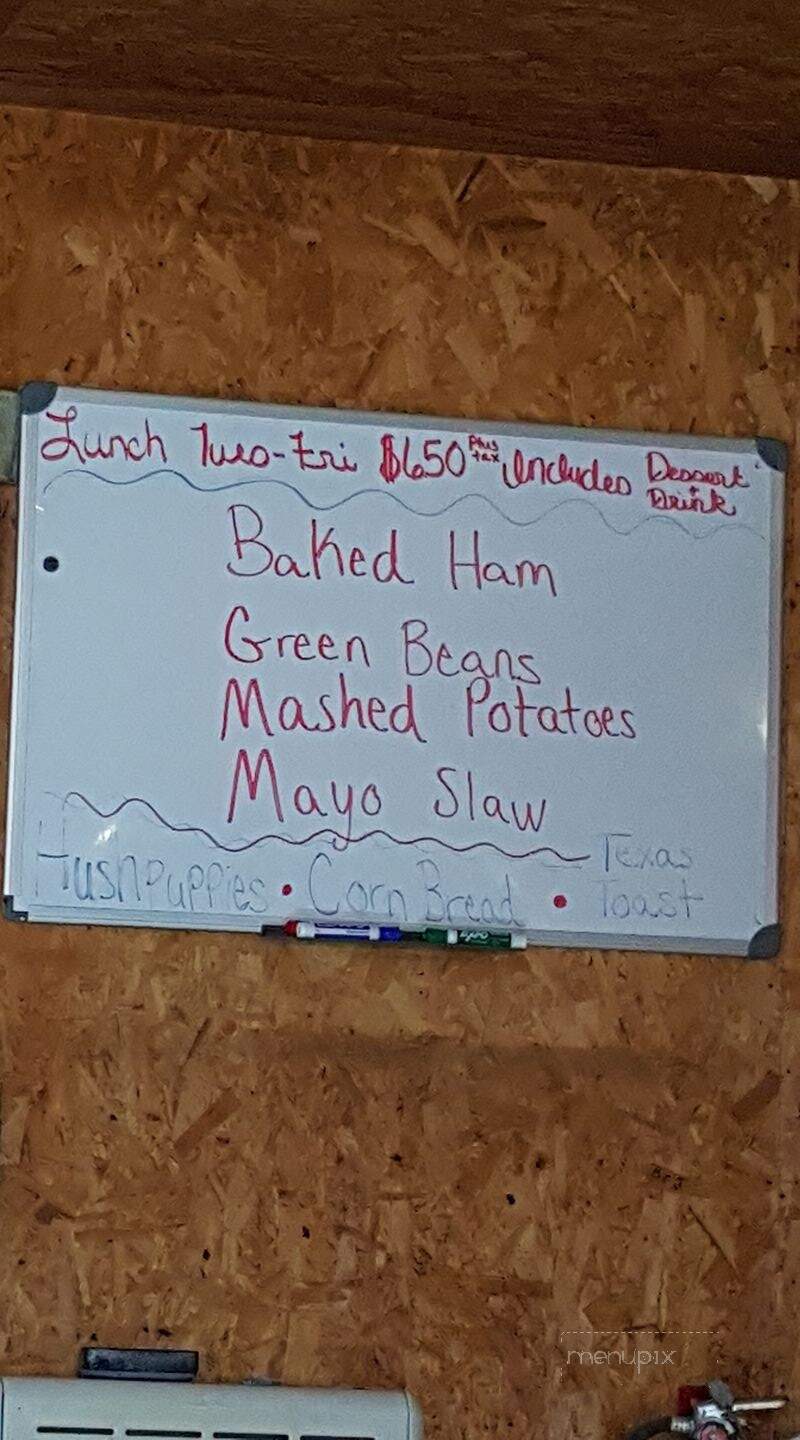 Lunch Tues-Fri $650 Plus tax Includes Dessert + Drink
Baked Ham
Green Beans
Mashed Potatoes
Mayo Slaw
Hushpuppies • Corn Bread • Texas Toast
expo
menupix